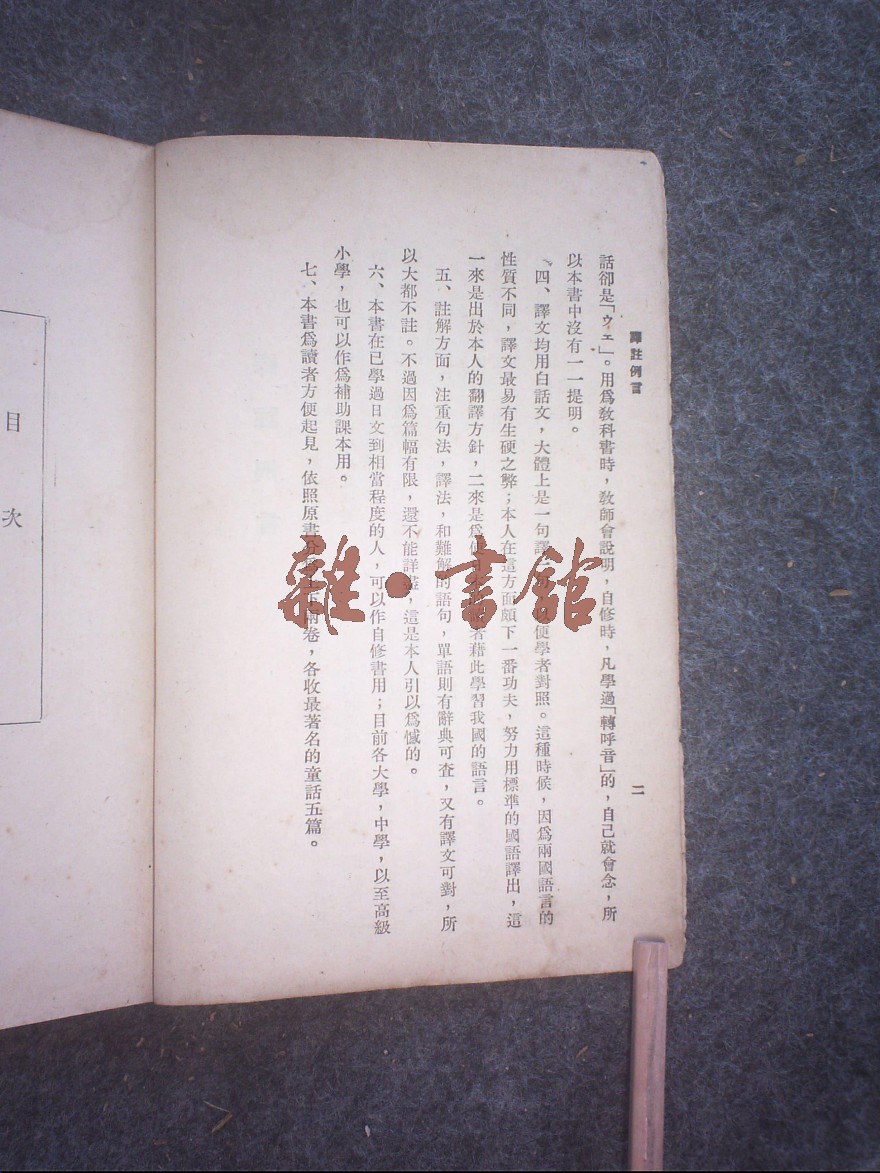 譯註例言
二
話卻是「ウェ」。用爲教科書時，教師會説明，自修時，凡學過「轉呼音」的，自己就會念，所
以本書中沒有一一提明。
四、譯文均用白話文，大體上是一句譯便學者對照。這種時候，因爲兩國語言的
性質不同，譯文最易有生硬之弊；本人在這方面頗下一番功夫，努力用標準的國語譯出，這
一來是出於本人的翻譯方針，二來是爲者藉此學習我國的語言。
五、註解方面，注重句法，譯法，和難解的語句，單語則有辭典可查，又有譯文可對，所
以大都不註。不過因爲篇幅有限，還不能詳盡，這是本人引以爲憾的。
六、本書在已學過日文到相當程度的人，可以作自修書用；目前各大學，中學，以至高級
小學，也可以作爲補助課本用。
七、本書爲讀者方便起見，依照原書兩卷，各收最著名的童話五篇。
目次
雜·書館